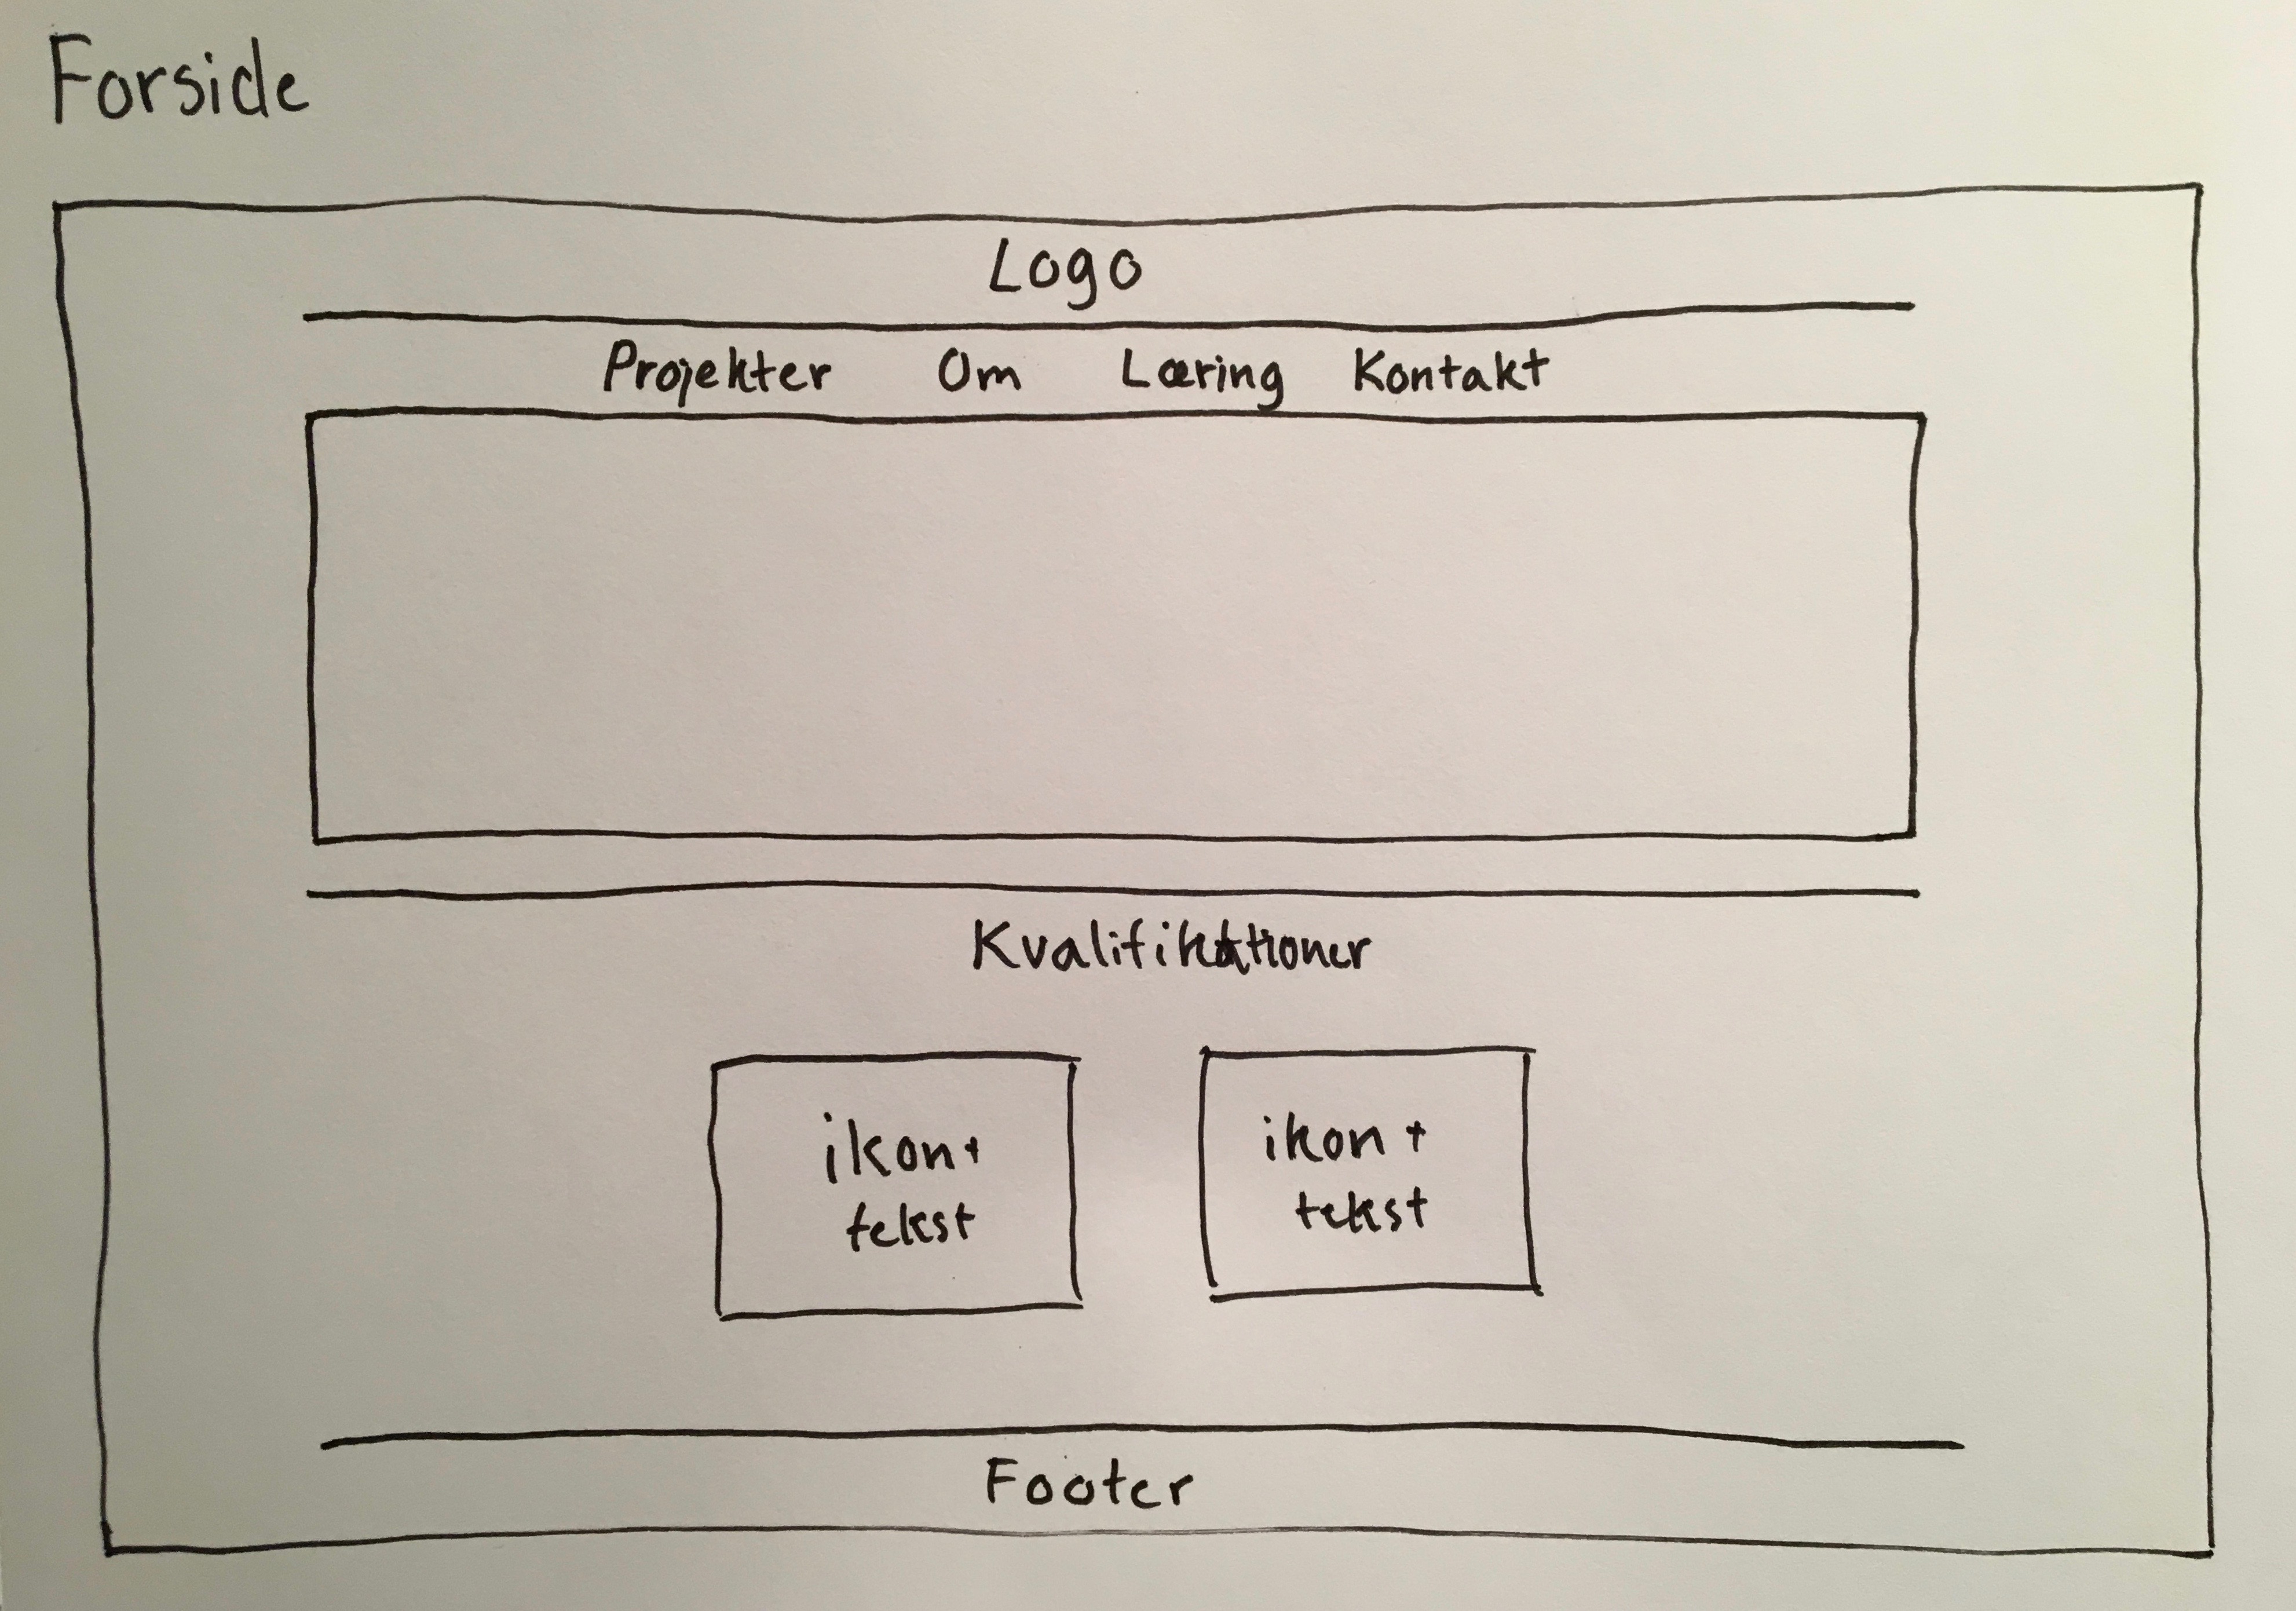 Forside
Logo
Projekter Om Læring Kontakt
Kvalifikationer
ikon+ ikon +
tekst tekst
Footer